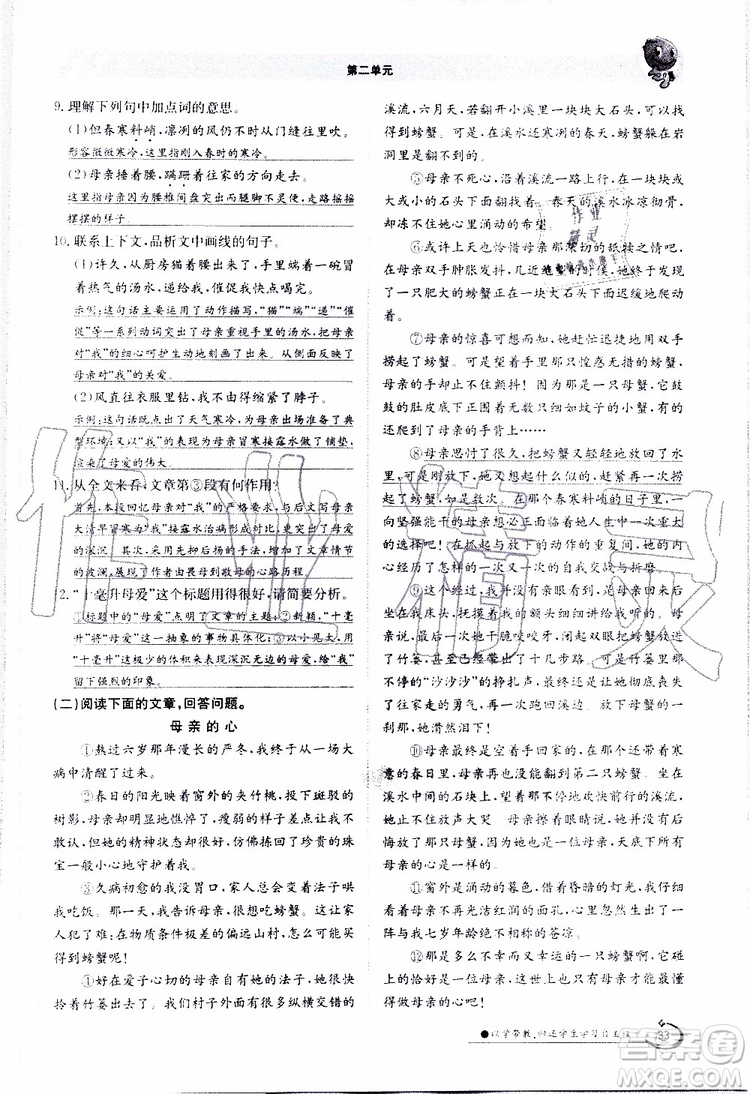 第二单元
9. 理解下列句中加点词的意思。
(1)但春寒料峭，凛冽的风仍不时从门缝往里吹。
形容微微寒冷，这里指刚入春时的寒冷。
(2)母亲捶着腰，蹒跚着往家的方向走去。
这里指母亲因为腰椎间盘突出而腿脚不灵便，走路摇摇
摆摆的样子。
10. 联系上下文，品析文中画线的句子。
(1)许久，从厨房猫着腰出来，手里端一碗冒
着热气的汤水，递给我，催促我快点喝完。
示例：这句话主要运用了动作描写，“猫”“端”“递”“催
促”等一系列动词突出了母亲重视手里的汤水，把母亲
对“我”的细心呵护生动地刻画了出来，从侧面反映了母
亲对“我”的关爱。
(2)风直往衣服里钻，我不由得缩紧了脖子。
示例：这句话既点出了天气寒冷，为母亲出场准备了典
型环境；又以“我”的表现为母亲冒寒接露水做了铺垫，
渲染了母爱的伟大。
11. 从全文来看，文章第③段有何作用？
首先，本段回忆母亲对“我”的严格要求，与后文写母亲
大清早冒寒为“我”接露水治病形成对比，衬托了母爱
的深沉；其次，采用先抑后扬的手法，增强了文章情节
的波澜，展现了作者由畏母到敬母的心路历程。
2. “十毫升母爱”这个标题用得很好，请简要分析。
①标题中的“母爱”点明了文章的主题；②新颖，“十毫
升”将“母爱”这一抽象的事物具体化；③以小见大，以
“十毫升”这么少的体积来表现深沉无边的母爱，给读者
留下强烈的印象。
(二)阅读下面的文章，回答问题。
母亲的心
①熬过六岁那年漫长的严冬，我终于从一场大
病中清醒了过来。
②春日的阳光映着窗外的夹竹桃，投下斑驳的
树影，母亲明显地憔悴了。瘦弱的我依然不敢大喜
大怒，但母亲的精神状态很好，仿佛拣回了珍贵的珠
宝一般小心地守护着我。
③久病初愈的我没有胃口，家人总变着法子哄
我吃饭。那一天，我告诉母亲，很想吃螃蟹。这可让家
人犯了难：在物质条件极差的偏远山村，简直是奢望。
④好在爱子心切的母亲自有她的法子，她执意
拎着竹篓出去了。我们村子四周有许多纵横交错的
溪流，六月天，若翻开小溪里一块块大石头，可以找
得到螃蟹。但在溪水还寒冽的春天，螃蟹躲在岩
洞里是翻不到的。
⑤母亲不死心，沿着溪流一路上行，不断翻开或
大或小的石头下面找着。春天的溪水冰凉彻骨，
却冻不住她心里涌动的希望。
⑥或许上天也怜惜母亲那份舐犊之情吧，就
在母亲双手肿胀发抖、几近绝望的时候，她终于发现
了一只肥大的螃蟹正在一块大石下面迟缓爬动。
⑦母亲的惊喜可想而知，只见她迅速用双手
捞起了螃蟹。可是那只惶惑不安的螃蟹在
母亲的手却松开了！原来那是一只母蟹，在它鼓
鼓的肚皮底下竟密密匝匝无数只细如蚊子的小蟹，有的
还爬到了母亲的手背上……
⑧母亲慌忙把螃蟹又轻轻地放回了水
里，可是刚放下，她又想起我的期盼，赶紧重新捞起
了螃蟹。我无法想象，在那个春寒料峭的日子里，一
向坚强能干的母亲想必正面临着她人生中一次重大
的选择吧！在抓起与放下的动作的重复间，她内心
已经历了一次又一次的良知与亲情的交战与折磨。
⑨这一切，我并没有亲眼看到，是后来母亲坐
在我床头，抚摸着我的额头细细讲给我听的。母
亲说，最后一次她干脆咬咬牙，闭起双眼把它放进
了竹篓，甚至已往家走出了十几步路。可是竹篓里那
不停的“沙沙沙”的挣扎声，最终还是让她彻底丧失了
往家走的勇气，又返回溪边。当她放走母蟹的一
刹那，她怆然泪下！
⑩母亲当然是空着手回家的，她无法在还带着寒
意的春日里，再去翻到第二只螃蟹。坐在
溪水中间的石块上，望着依旧欢快流淌的溪流，她
忍不住放声大哭了。母亲擦着眼睛说，她不是后
悔放了那只螃蟹，而是因为同为母亲，天底下的母亲
都是一样的呀！
⑪窗外是涌动的暮色，借着昏暗的灯光，我分
明看着母亲不再光洁红润的面孔，心里竟涌动了一
阵与我七岁年龄绝不相称的苍凉。
⑫那是一只不幸而又幸运的螃蟹啊，它碰
上的恰好是一位母亲，这世上也只有母亲才最懂
得母亲的心了！
●以学带教，归还学生学习自主权
33
作业精灵
答案圈
MXQE.COM